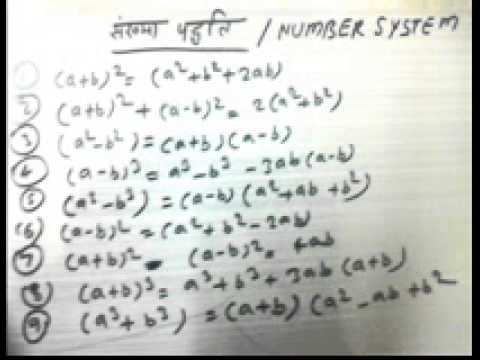 संख्या पद्धति / NUMBER SYSTEM
① (a+b)² = (a²+b²+2ab)
② (a+b)² + (a-b)² = 2(a²+b²)
③ (a²-b²) = (a+b)(a-b)
④ (a-b)³ = a³-b³ -3ab(a-b)
⑤ (a³-b³) = (a-b)(a²+ab+b²)
⑥ (a-b)² = (a²+b²-2ab)
⑦ (a+b)² - (a-b)² = 4ab
⑧ (a+b)³ = a³+b³+3ab(a+b)
⑨ (a³+b³) = (a+b)(a²-ab+b²